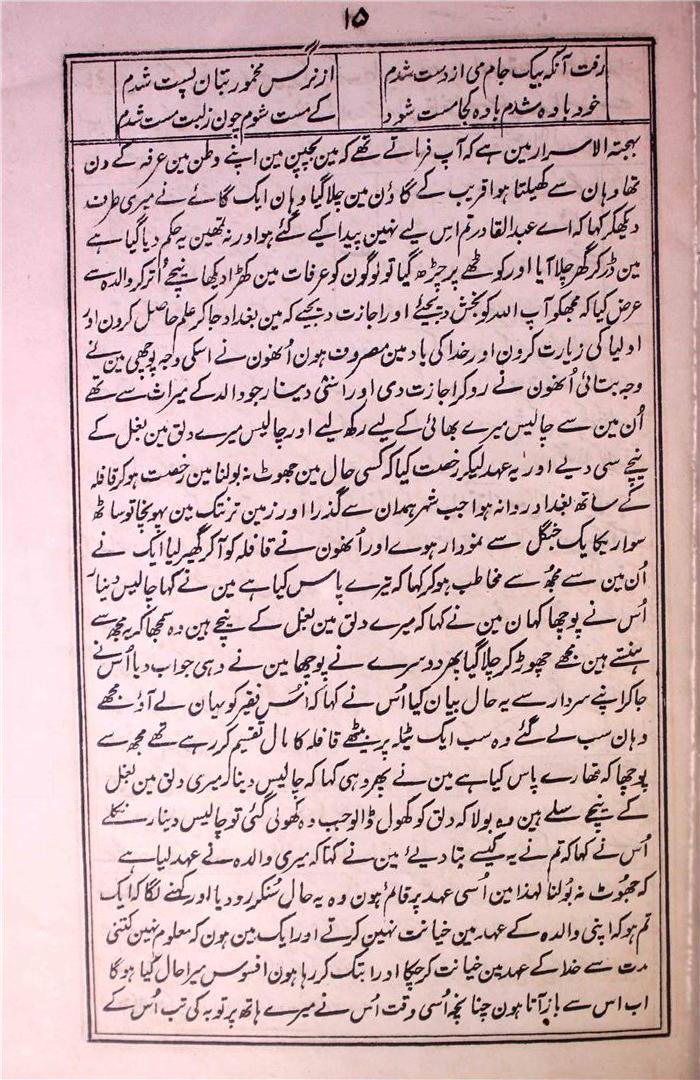 ۱۵
رفت آنکه بیک جام می از دست شدم
از نرگس مخمور بتان پست شدم
خود باده شدم باده کجا مست شود
کے مست شوم چون ز لبت مست شدم
بہجتہ الاسرار مین ہے کہ آپ فرماتے تھے کہ مین بچپن مین اپنے وطن مین عرفہ کے دن
تھا وہان سے کھیلتا ہوا قریب کے گاؤن مین چلا گیا وہان ایک گائے نے میری طرف
دیکھکر کہا کہ اے عبد القادر تم اس لیے نہین پیدا کیے گئے ہو اور نہ تمھین یہ حکم دیا گیا ہے
مین ڈر کر گھر چلا آیا اور کوٹھے پر چڑھ گیا تو لوگون کو عرفات مین کھڑا دیکھا نیچے اُتر کر والدہ سے
عرض کیا کہ مجھکو آپ اللہ کو بخش دیجئے اور اجازت دیجیے کہ مین بغداد جا کر علم حاصل کرون اور
اولیا کی زیارت کرون اور خدا کی یاد مین مصروف ہون اُنھون نے اسکی وجہ پوچھی مین نے
وجہ بتائی اُنھون نے رو کر اجازت دی اور اسّی دینار جو والد کے میراث سے تھے
اُن مین سے چالیس میرے بھائی کے لیے رکھ لیے اور چالیس میرے دلق مین بغل کے
نیچے سی دیے اور یہ عہد لیکر رخصت کیا کہ کسی حال مین جھوٹ نہ بولنا مین رخصت ہو کر قافلہ
کے ساتھ بغداد روانہ ہوا جب شہر ہمدان سے گذرا اور زمین ترتنک مین پہونچا تو ساٹھ
سوار یکایک جنگل سے نمودار ہوے اور اُنھون نے قافلہ کو آکر گھیر لیا ایک نے
اُن مین سے مجھ سے مخاطب ہو کر کہا کہ تیرے پاس کیا ہے مین نے کہا چالیس دینار
اُس نے پوچھا کہان مین نے کہا کہ میرے دلق مین بغل کے نیچے ہین وہ سمجھا کہ یہ مجھ سے
ہنستے ہین مجھے چھوڑ کر چلا گیا پھر دوسرے نے پوچھا مین نے وہی جواب دیا اُس نے
جا کر اپنے سردار سے یہ حال بیان کیا اُس نے کہا کہ اُس فقیر کو یہان لے آؤ مجھے
وہان سب لے گئے وہ سب ایک ٹیلہ پر بیٹھے قافلہ کا مال تقسیم کر رہے تھے مجھ سے
پوچھا کہ تمھارے پاس کیا ہے مین نے پھر وہی کہا کہ چالیس دینار میری دلق مین بغل
کے نیچے سلے ہین وہ بولا کہ دلق کو کھول ڈالو جب وہ کھولی گئی تو چالیس دینار نکلے
اُس نے کہا کہ تم نے یہ کیسے بتا دیے مین نے کہا کہ میری والدہ نے عہد لیا ہے
کہ جھوٹ نہ بولنا لہذا مین اُسی عہد پر قائم ہون وہ یہ حال سُنکر رو دیا اور کہنے لگا کہ ایک
تم ہو کہ اپنی والدہ کے عہد مین خیانت نہین کرتے اور ایک مین ہون کہ معلوم نہین کتنی
مدت سے خدا کے عہد مین خیانت کر چکا اور ابتک کر رہا ہون افسوس میرا حال کیا ہو گا
اب اس سے باز آتا ہون چنانچہ اُسی وقت اُس نے میرے ہاتھ پر توبہ کی تب اُس کے